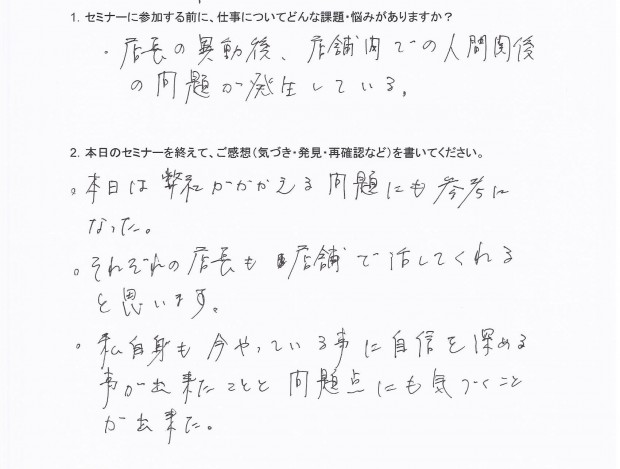 1. セミナーに参加する前に、仕事についてどんな課題・悩みがありますか？
・店長の異動後、店舗内での人間関係
の問題が発生している。
2. 本日のセミナーを終えて、ご感想（気づき・発見・再確認など）を書いてください。
。本日は弊社がかかえる問題にも参考に
なった。
。それぞれの店長も店舗で活してくれる
と思います。
。私自身も今やっている事に自信を深める
事が出来たことと問題点にも気づくこと
が出来た。